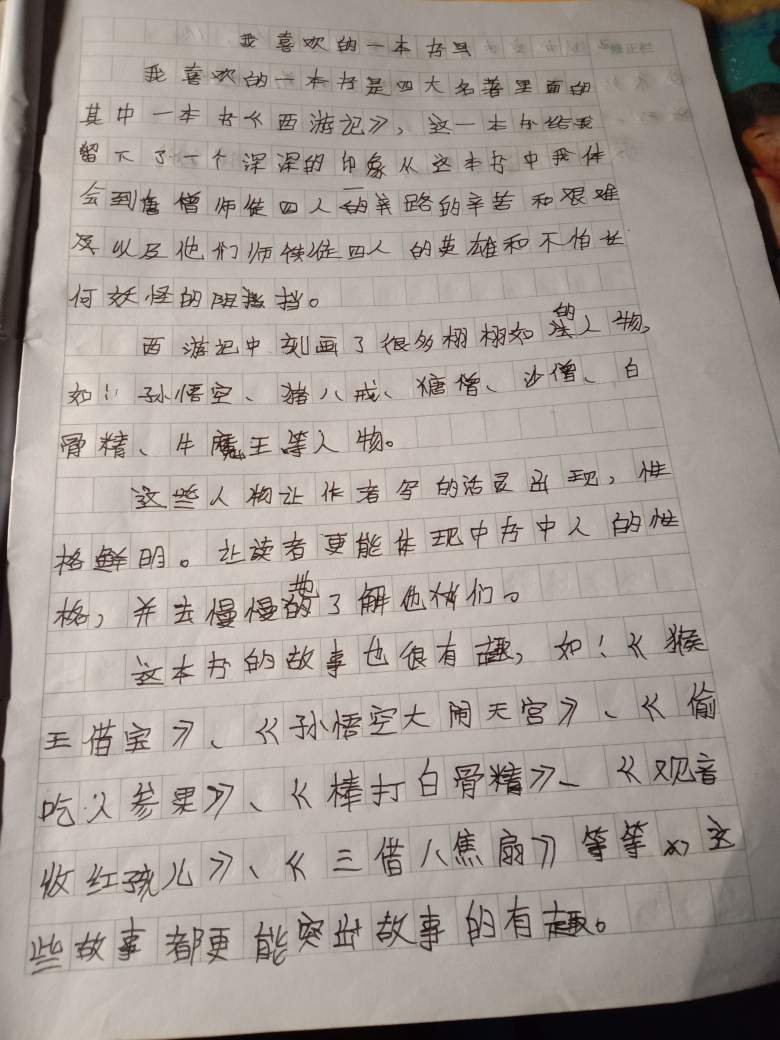 我喜欢的一本书
我喜欢的一本书是四大名著里面的
其中一本书《西游记》，这一本书给我
留下了一个深深的印象从这本书中我体
会到唐僧师徒四人的路的辛苦和艰难
以及他们师徒四人的英雄和不怕
何妖怪的阻挡。
西游记中刻画了很多栩栩如的人物，
如：孙悟空、猪八戒、糖僧、沙僧、白
骨精、牛魔王等人物。
这些人物让作者写的活灵出现，性
格鲜明。让读者更能体现中书中人的性
格，并去慢慢地了解他们。
这本书的故事也很有趣，如：《猴
王借宝》、《孙悟空大闹天宫》、《偷
吃人参果》、《棒打白骨精》、《观音
收红孩儿》、《三借八焦扇》等等，这
些故事都更能突出故事的有趣。